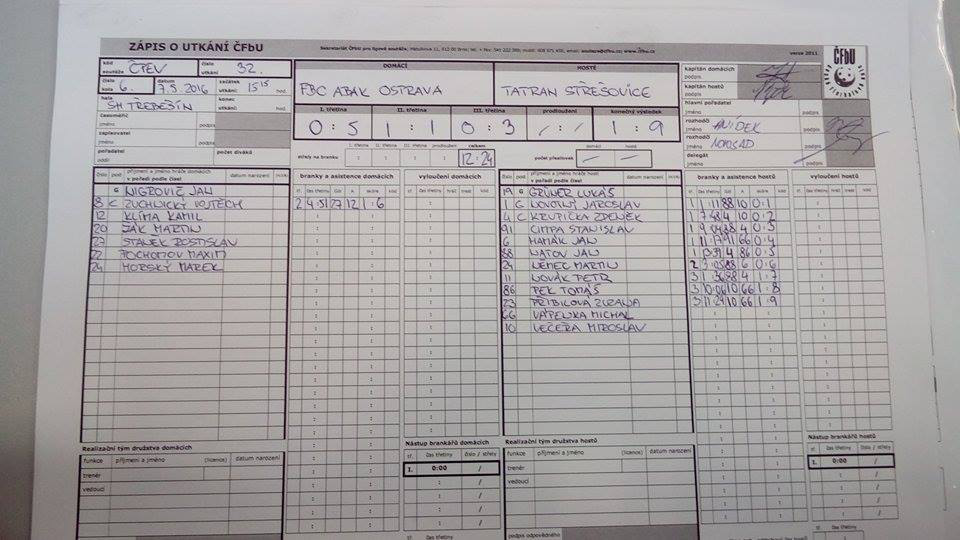 ZÁPIS O UTKÁNÍ ČFbU
Sekretariát ČFbU pro ligové soutěže
verze 2011
ČFbU
kód soutěže ČPEV
číslo utkání 32.
číslo kola 6.
datum 7.5.2016
začátek utkání: 15 15 hod.
hala SH TŘEBEŠÍN
konec utkání: hod.
časoměřič
jméno podpis
zapisovatel
jméno podpis
pořadatel
oddíl
počet diváků
DOMÁCÍ
FBC ABAK OSTRAVA
HOSTÉ
TATRAN STŘEŠOVICE
I. třetina II. třetina III. třetina prodloužení konečný výsledek
0 : 5 1 : 1 0 : 3 / : / 1 : 9
I. třetina II. třetina III. třetina prodloužení celkem
střely na branku : : : : 12 : 24
domácí hosté
počet přesilovek – –
kapitán domácích
podpis
kapitán hostů
podpis
hlavní pořadatel
jméno podpis
rozhodčí
jméno podpis
rozhodčí NOVOSAD
jméno podpis
delegát
jméno podpis
číslo post příjmení a jméno hráče domácích v pořadí podle čísel datum narození (nar.)
G NIGROVIČ JAN
8 C ZUCHNICKÝ VOJTĚCH
12 KLÍMA KAMIL
20 ŽÁK MARTIN
27 STANEK ROSTISLAV
22 POCHOMOV MAXIM
24 HORSKÝ MAREK
branky a asistence domácích
tř. čas třetiny Gól A skóre kód
2 4:51 27 12 1:6
vyloučení domácích
tř. čas třetiny hráč trest kód
číslo post příjmení a jméno hráče hostů v pořadí podle čísel datum narození (nar.)
19 G GRÜNER LUKÁŠ
1 G NOVOTNÝ JAROSLAV
4 C KRUPIČKA ZDENĚK
91 CIMPA STANISLAV
6 HAMÁK JAN
88 NATOV JAN
24 NĚMEC MARTIN
11 NOVÁK PETR
86 PEK TOMÁŠ
23 PŘIBILOVÁ ZUZANA
66 VÁPENKA MICHAL
10 VEČEŘA MIROSLAV
branky a asistence hostů
tř. čas třetiny Gól A skóre kód
1 1:11 88 10 0:1
1 7:48 4 10 0:2
1 11:17 91 66 0:4
1 13:39 4 86 0:5
2 3:05 88 6 0:6
3 1:36 88 4 1:7
3 10:06 10 66 1:8
3 11:24 10 66 1:9
vyloučení hostů
tř. čas třetiny hráč trest kód
Realizační tým družstva domácích
funkce příjmení a jméno (licence) datum narození
trenér
vedoucí
Nástup brankářů domácích
tř. čas třetiny číslo / střely
I. 0:00 /
tř. čas třetiny
Realizační tým družstva hostů
funkce příjmení a jméno (licence) datum narození
trenér
vedoucí
podpis odpovědného
Nástup brankářů hostů
tř. čas třetiny číslo / střely
I. 0:00 /